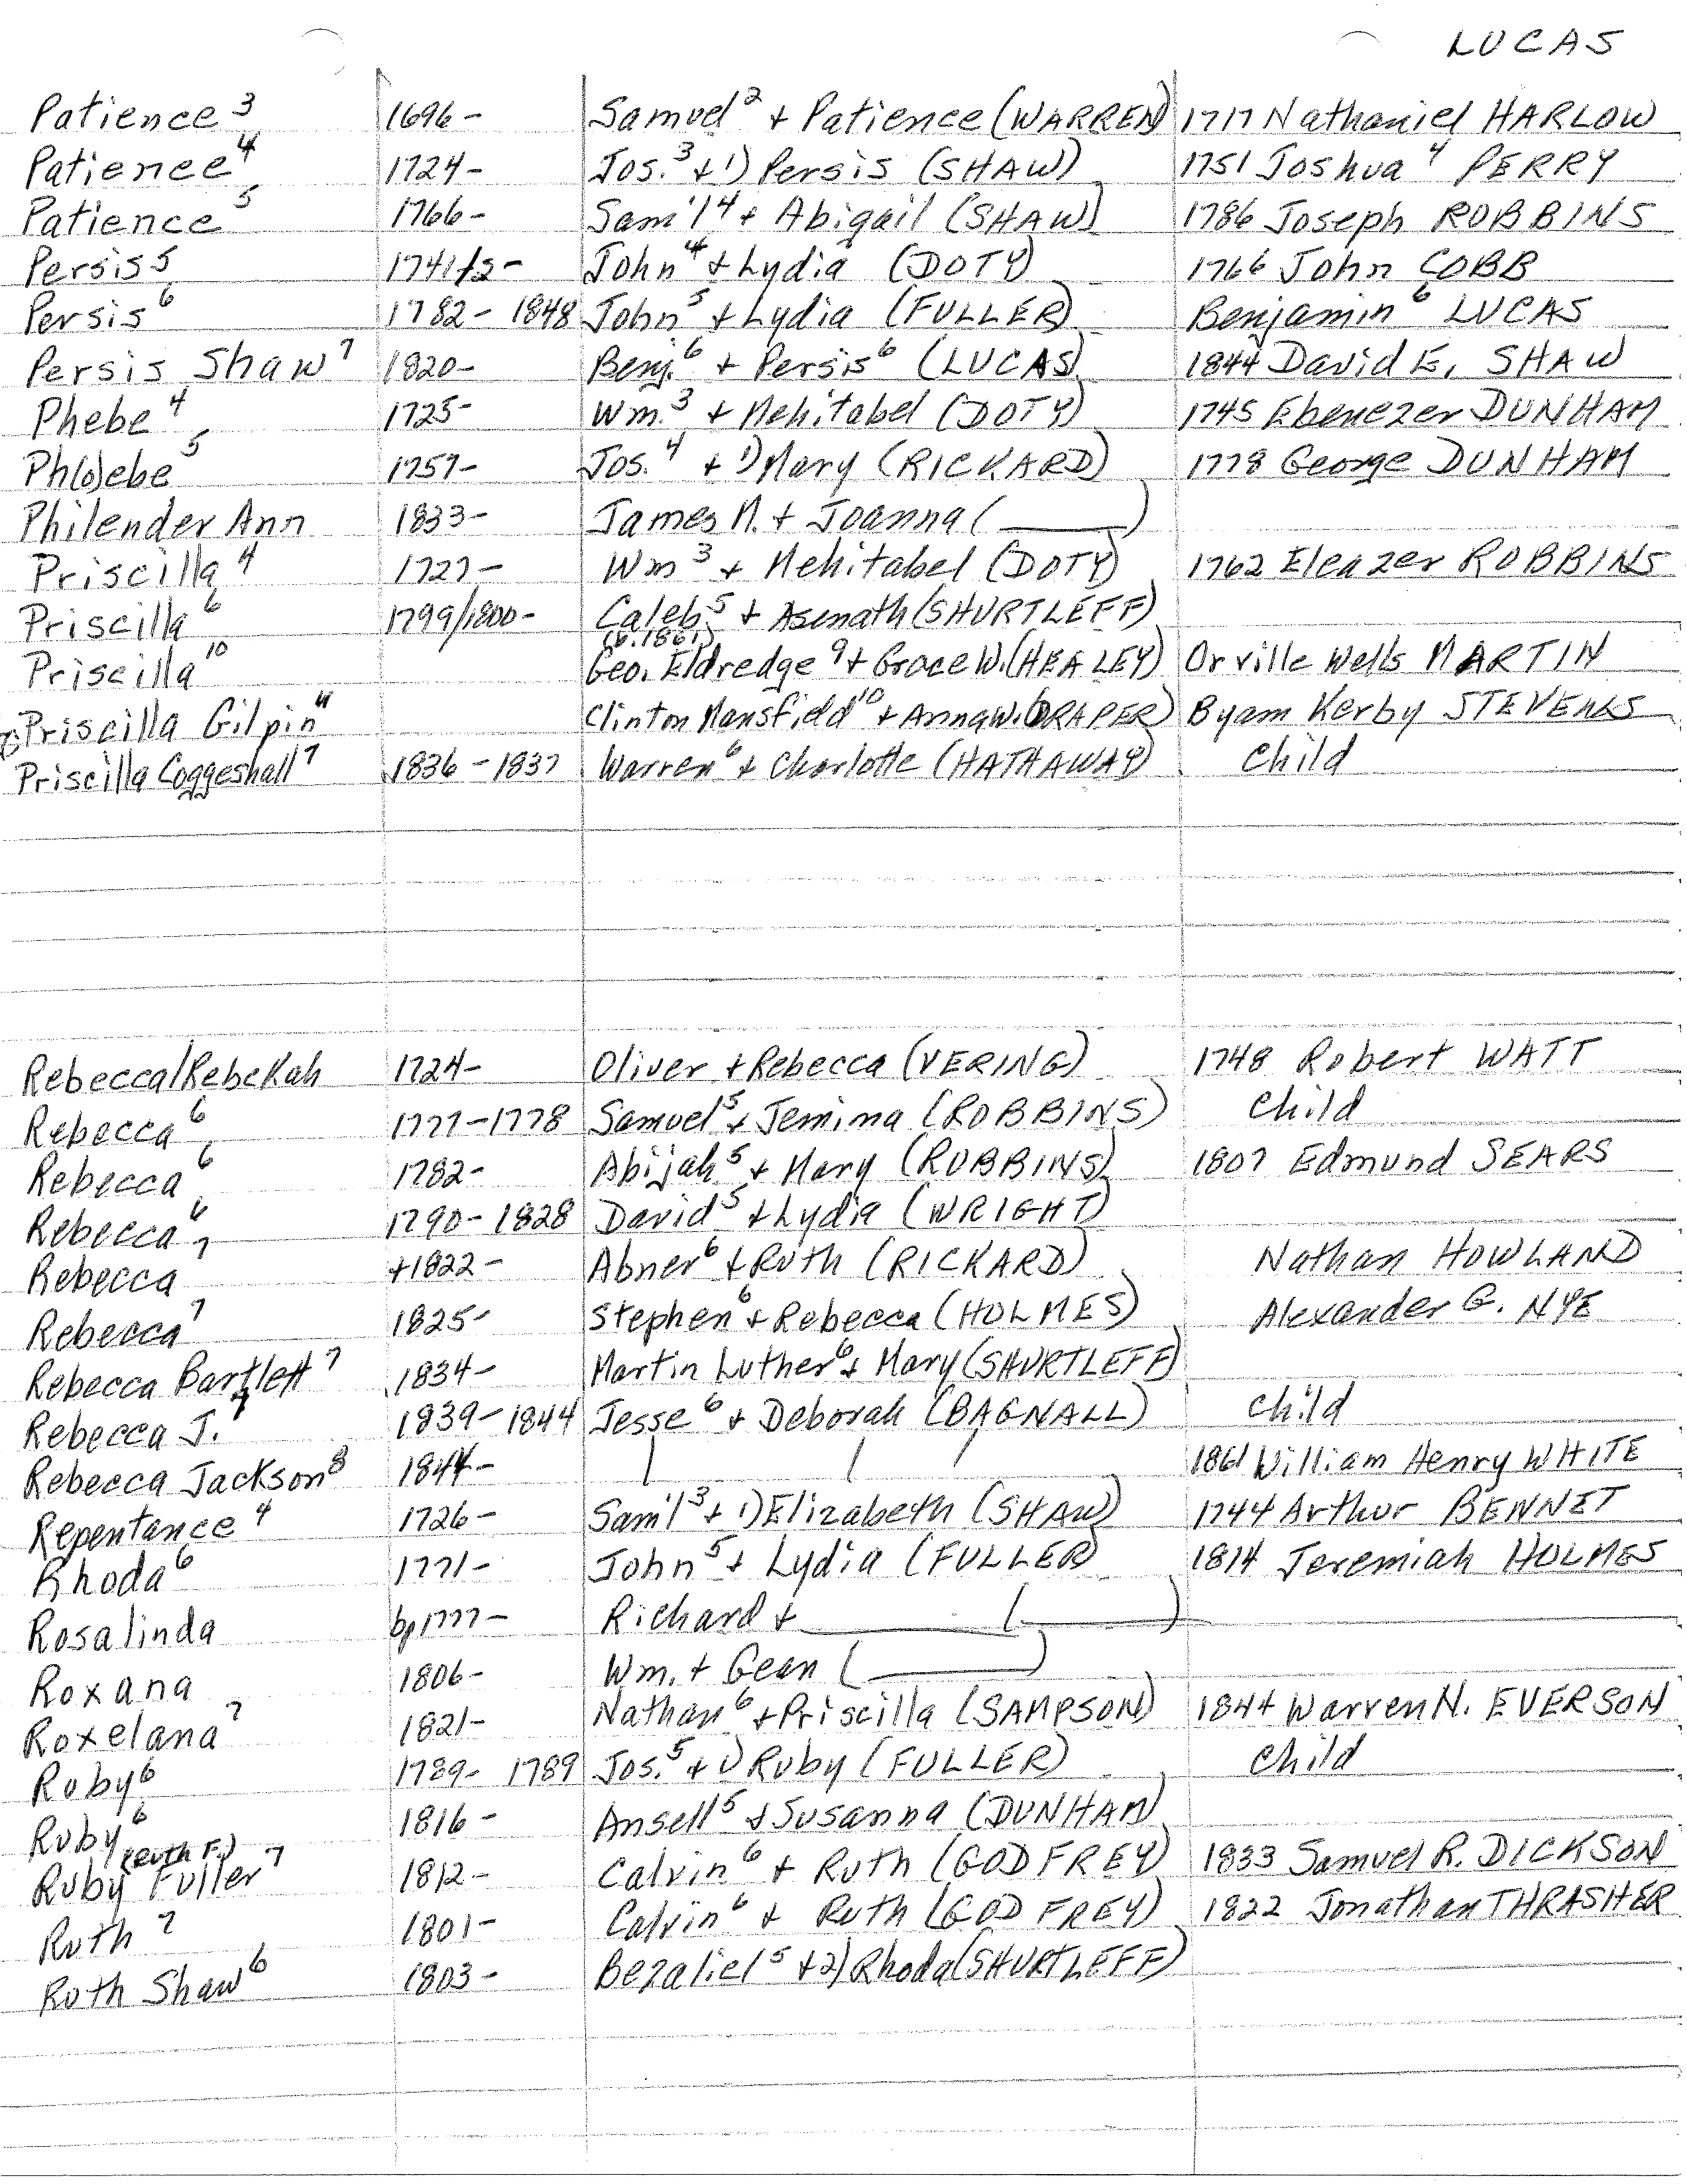 LUCAS
Patience³ 1696- Samuel² + Patience (WARREN) 1717 Nathaniel HARLOW
Patience⁴ 1724- Jos.³ + 1) Persis (SHAW) 1751 Joshua⁴ PERRY
Patience⁵ 1766- Sam'l⁴ + Abigail (SHAW) 1786 Joseph ROBBINS
Persis⁵ 1741/2- John⁴ + Lydia (DOTY) 1766 John COBB
Persis⁶ 1782-1848 John⁵ + Lydia (FULLER) Benjamin⁶ LUCAS
Persis Shaw⁷ 1820- Benj.⁶ + Persis⁶ (LUCAS) 1844 David E. SHAW
Phebe⁴ 1725- Wm.³ + Mehitabel (DOTY) 1745 Ebenezer DUNHAM
Ph(o)ebe⁵ 1757- Jos.⁴ + 1) Mary (RICKARD) 1778 George DUNHAM
Philender Ann 1833- James M. + Joanna (______)
Priscilla⁴ 1727- Wm³ + Mehitabel (DOTY) 1762 Eleazer ROBBINS
Priscilla⁶ 1799/1800- Caleb⁵ + Asenath (SHURTLEFF)
(b.1861)
Priscilla¹⁰ Geo. Eldredge⁹ + Grace W. (HEALEY) Orville Wells MARTIN
Priscilla Gilpin¹¹ Clinton Mansfield¹⁰ + Anna W. (DRAPER) Byam Kerby STEVENS
Priscilla Coggeshall⁷ 1836-1837 Warren⁶ + Charlotte (HATHAWAY) child
Rebecca/Rebekah 1724- Oliver + Rebecca (VERING) 1748 Robert WATT
Rebecca⁶ 1777-1778 Samuel⁵ + Jemima (ROBBINS) child
Rebecca⁶ 1782- Abijah⁵ + Mary (ROBBINS) 1807 Edmund SEARS
Rebecca⁶ 1790-1828 David⁵ + Lydia (WRIGHT)
Rebecca⁷ +1822- Abner⁶ + Ruth (RICKARD) Nathan HOWLAND
Rebecca⁷ 1825- Stephen⁶ + Rebecca (HOLMES) Alexander G. NYE
Rebecca Bartlett⁷ 1834- Martin Luther⁶ + Mary (SHURTLEFF)
Rebecca J.⁷ 1839-1844 Jesse⁶ + Deborah (BAGNALL) child
Rebecca Jackson⁸ 1844- 1861 William Henry WHITE
Repentance⁴ 1726- Sam'l³ + 1) Elizabeth (SHAW) 1744 Arthur BENNET
Rhoda⁶ 1771- John⁵ + Lydia (FULLER) 1814 Jeremiah HOLMES
Rosalinda bp 1777- Richard + ______ (______)
Roxana 1806- Wm. + Gean (______)
Roxelana⁷ 1821- Nathan⁶ + Priscilla (SAMPSON) 1844 Warren N. EVERSON
Ruby⁶ 1789-1789 Jos.⁵ + 1) Ruby (FULLER) child
Ruby⁶ 1816- Ansell⁵ + Susanna (DUNHAM)
(Ruth F.)
Ruby Fuller⁷ 1812- Calvin⁶ + Ruth (GODFREY) 1833 Samuel R. DICKSON
Ruth⁷ 1801- Calvin⁶ + Ruth (GODFREY) 1822 Jonathan THRASHER
Ruth Shaw⁶ 1803- Bezaliel⁵ + 2) Rhoda (SHURTLEFF)